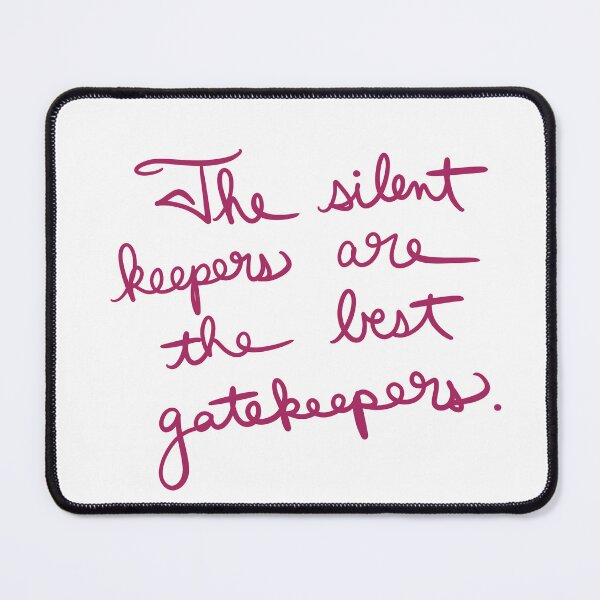 The silent
keepers are
the best
gatekeepers.